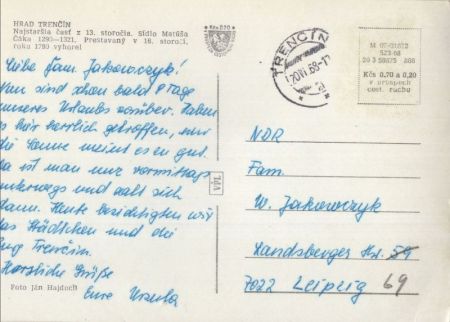 HRAD TRENČÍN
Najstaršia časť z 13. storočia. Sídlo Matúša
Čáka 1290—1321. Prestavaný v 16. storočí,
roku 1790 vyhorel
TRENČÍN
Kčs 0,70 a 0,20
v prospech
cest. ruchu
Liebe Fam. Jakowczyk!
Nun sind schon bald 8 Tage
unseres Urlaubs vorüber. Haben
es hier herrlich getroffen, nur
die Sonne meint es en gut.
Da ist man nur vormittags
unterwegs und aalt sich
dann. Heute besichtigten wir
das Städtchen und die
Burg Trenčín.
Herzliche Grüße
Eure Ursula
VPL
Foto Ján Hajdoch
NDR
Fam.
W. Jakowczyk
Landsberger Str. 59
7022 Leipzig 69